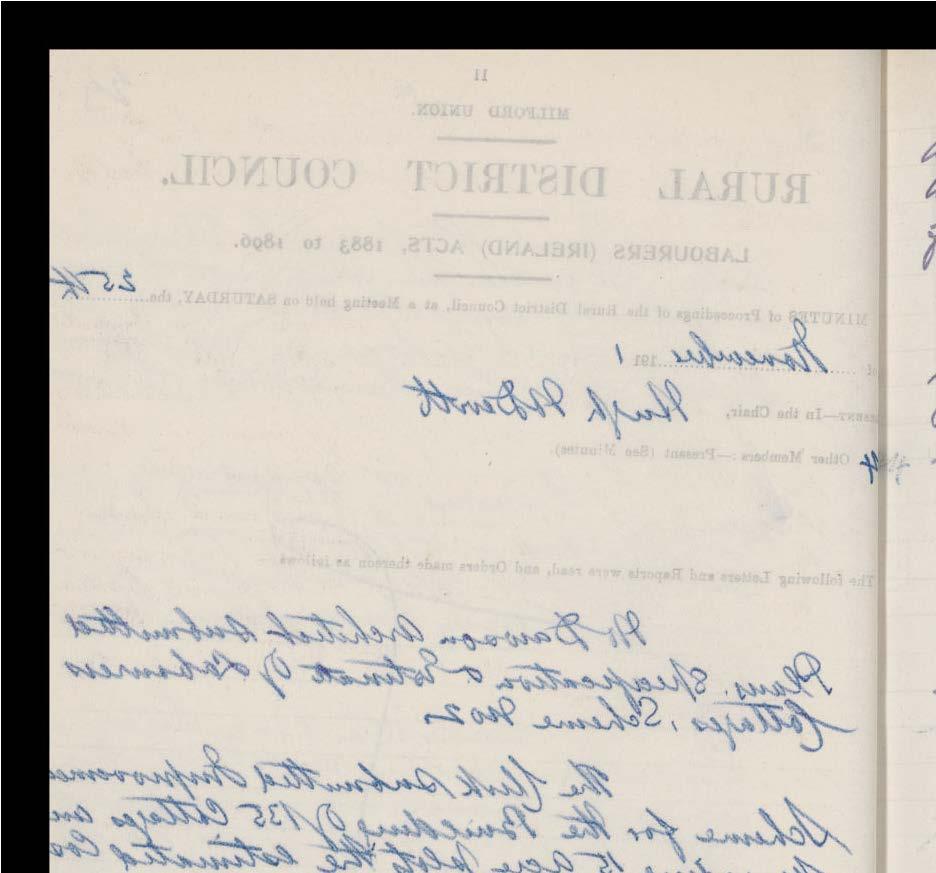 11
MILFORD UNION.
RURAL DISTRICT COUNCIL.
LABOURERS (IRELAND) ACTS, 1883 to 1896.
MINUTES of Proceedings of the Rural District Council, at a Meeting held on SATURDAY, the 25th
of November 1911
PRESENT—In the Chair, Hugh McDevitt
Other Members:—Present (See Minutes).
The following Letters and Reports were read, and Orders made thereon as follows
Mr Dawson Architect submitted
Plans, Specification & Estimate of Labourers
Cottages, Scheme No 2
The Clerk submitted Improvement
Scheme for the Building of 135 Cottages
15 acre plots the estimated